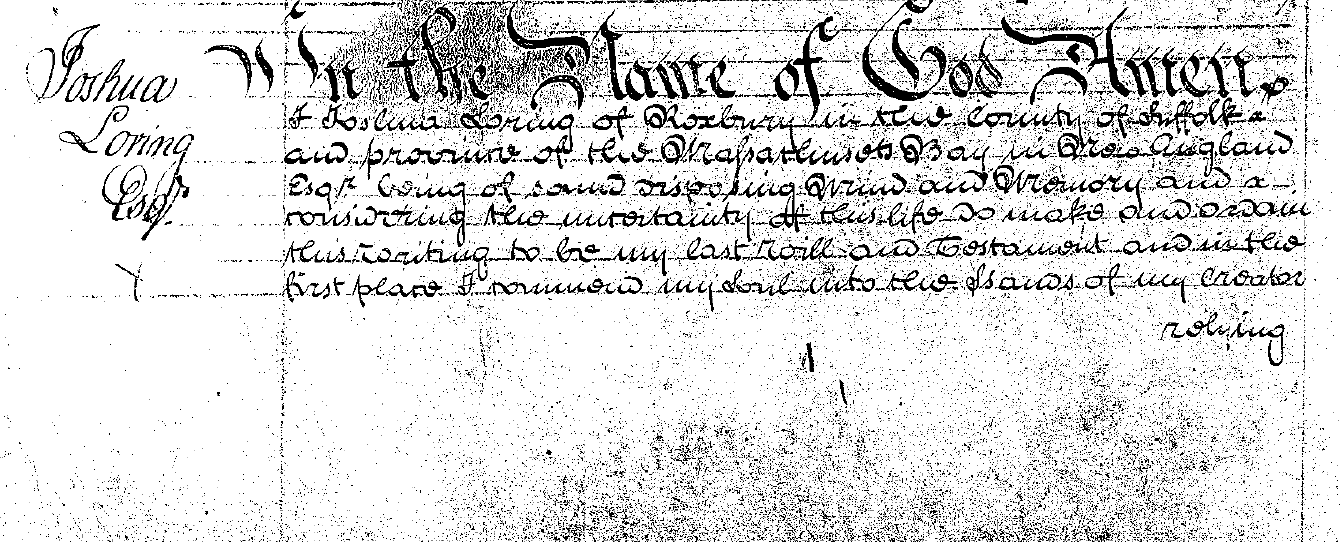 Joshua
Loring
Esqr.
In the Name of God Amen.
I Joshua Loring of Roxbury in the County of Suffolk
and province of the Massachusets Bay in New England
Esqr. being of sound disposing Mind and Memory and
considering the uncertainty of this life do make and ordain
this writing to be my last Will and Testament and in the
first place I commend my Soul into the Hands of my Creator
relying